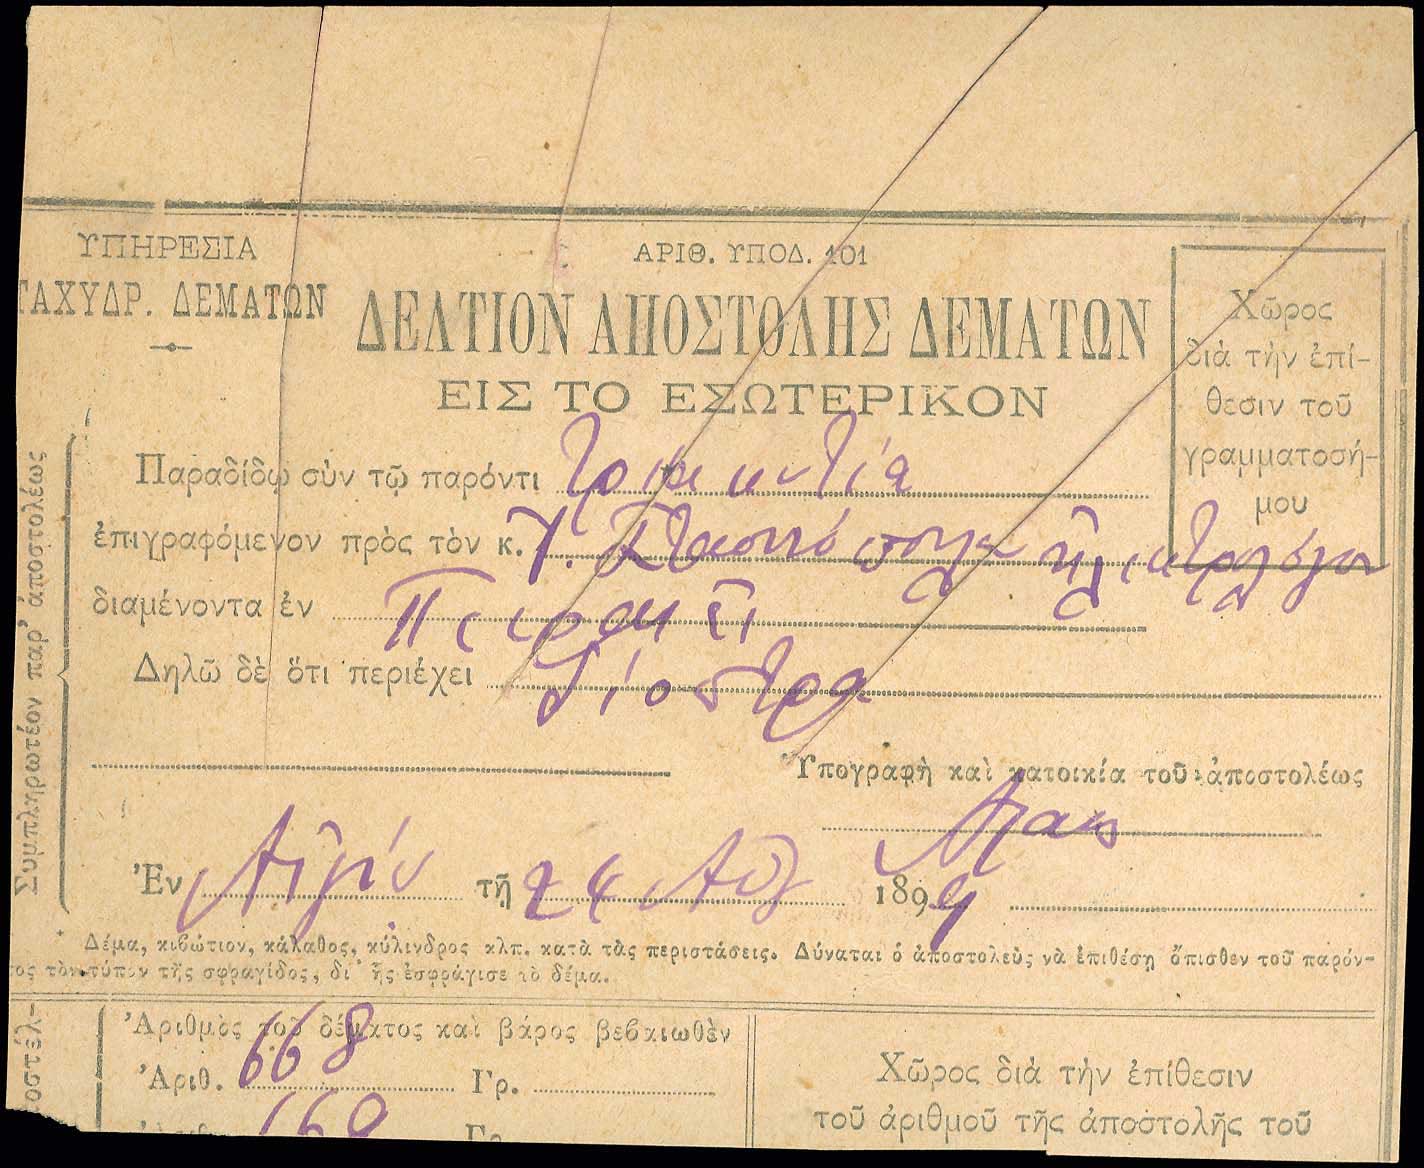 ΥΠΗΡΕΣΙΑ
ΤΑΧΥΔΡ. ΔΕΜΑΤΩΝ
ΑΡΙΘ. ΥΠΟΔ. 101
ΔΕΛΤΙΟΝ ΑΠΟΣΤΟΛΗΣ ΔΕΜΑΤΩΝ
ΕΙΣ ΤΟ ΕΣΩΤΕΡΙΚΟΝ
Χῶρος
διὰ τὴν ἐπί-
θεσιν τοῦ
γραμματοσή-
μου
Συμπληρωτέον παρ' ἀποστολέως
Παραδίδω σὺν τῷ παρόντι
ἐπιγραφόμενον πρὸς τὸν κ. Γ.
διαμένοντα ἐν Πειραιεῖ
Δηλῶ δὲ ὅτι περιέχει
Ὑπογραφὴ καὶ κατοικία τοῦ ἀποστολέως
Ἐν Αἰγίῳ τῇ 24 1899
Δέμα, κιβώτιον, κάλαθος, κύλινδρος κλπ. κατὰ τὰς περιστάσεις. Δύναται ὁ ἀποστολεὺς νὰ ἐπιθέσῃ ὄπισθεν τοῦ παρόν-
τος τὸν τύπον τῆς σφραγίδος, δι' ἧς ἐσφράγισε τὸ δέμα.
Ἀριθμὸς τοῦ δέματος καὶ βάρος βεβαιωθὲν
Ἀριθ. 668 Γρ.
Χῶρος διὰ τὴν ἐπίθεσιν
τοῦ ἀριθμοῦ τῆς ἀποστολῆς τοῦ